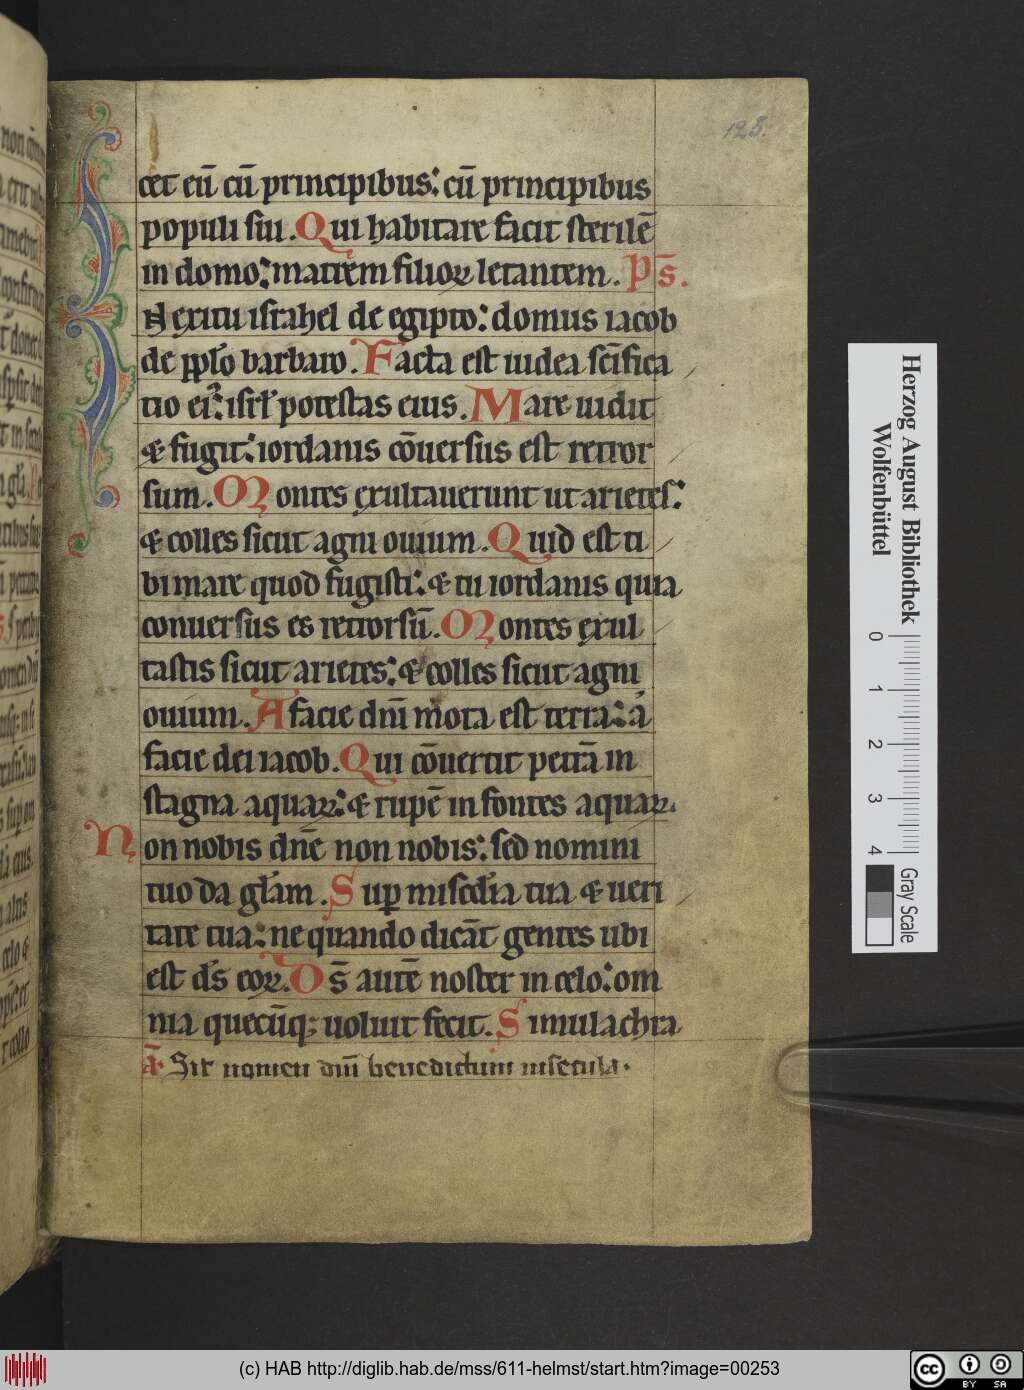 128.
cet eū cū principibus: cū principibus
populi sui. Qui habitare facit sterilē
in domo: matrem filioꝝ letantem. Ps̄.
N exitu israhel de egipto: domus iacob
de pplō barbaro. Facta est iudea scīfica
tio eiꝰ: isrl̄ potestas eius. Mare uidit
& fugit: iordanis cōuersus est retror
sum. Montes exultauerunt ut arietes:
& colles sicut agni ouium. Quid est ti
bi mare quod fugisti: & tu iordanis quia
conuersus es retrorsū. Montes exul
tastis sicut arietes: & colles sicut agni
ouium. A facie dn̄i mota est terra: a
facie dei iacob. Qui cōuertit petrā in
stagna aquaꝝ: & rupē in fontes aquaꝝ.
Non nobis dn̄e non nobis: sed nomini
tuo da gl̄am. Suꝑ misc̄dia tua & ueri
tate tua: ne quando dicāt gentes ubi
est ds̄ eoꝝ. Ds̄ autē noster in celo: om
nia quecūqꝫ uoluit fecit. Simulachra
a. Sit nomen dn̄i benedictum in secula.
Herzog August Bibliothek
Wolfenbüttel
0 1 2 3 4
Gray Scale
(c) HAB http://diglib.hab.de/mss/611-helmst/start.htm?image=00253
cc BY SA